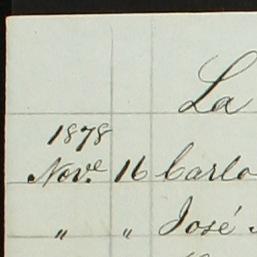 La
1878
Nov.e 16 Carlo
" " José